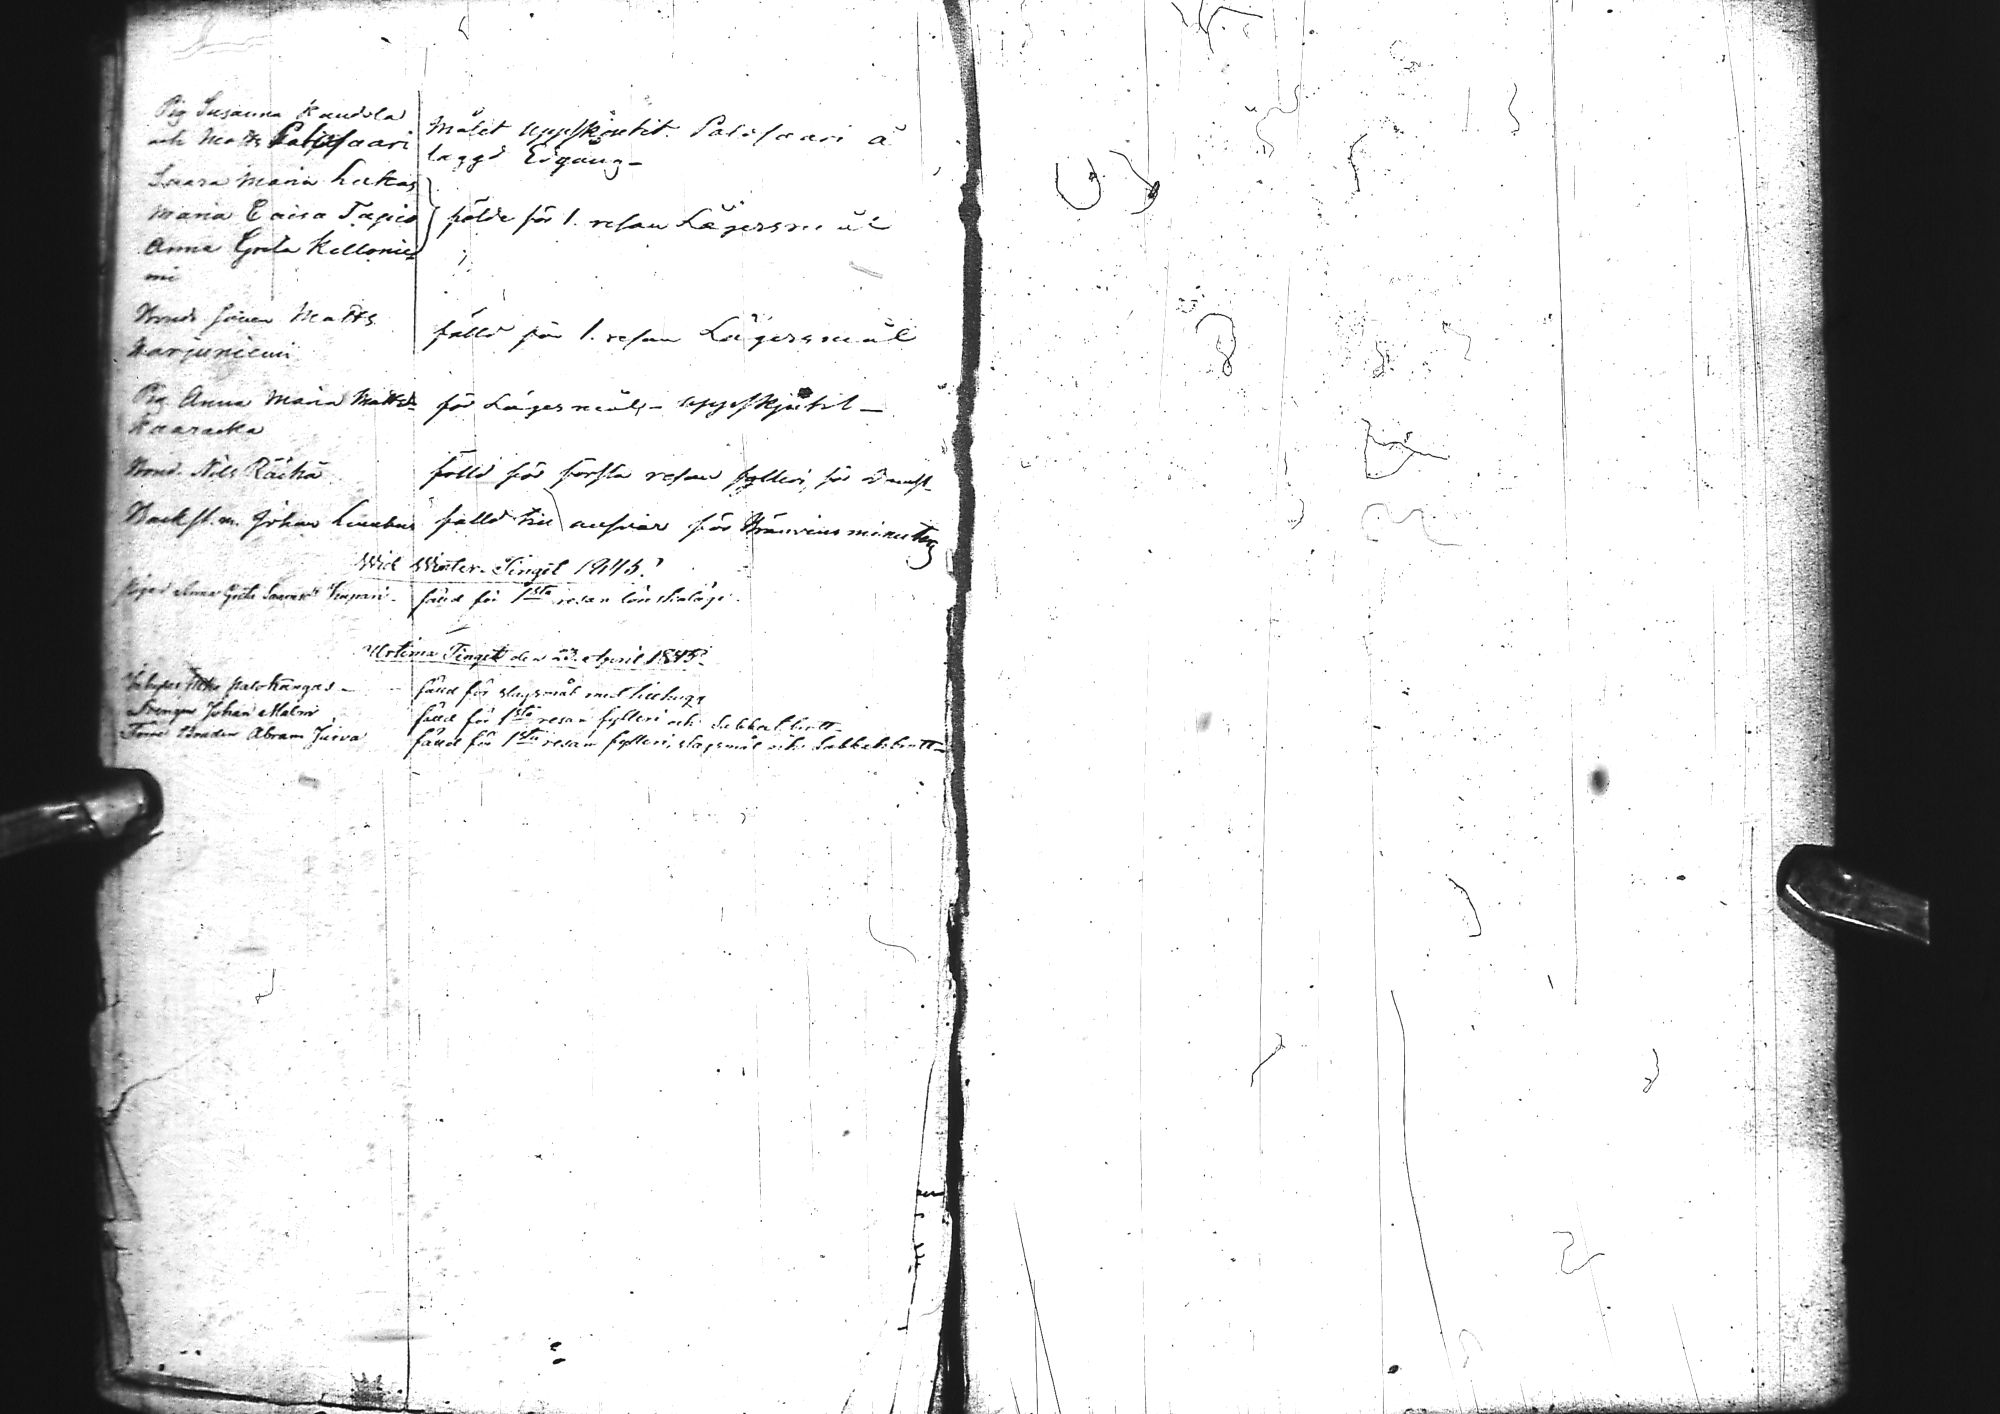 Pig Susanna Kandola
och Matts Palosaari
Målet uppskjutit. Palosaari å
lagd Edgång -
Saara Maria Lukas
Maria Caisa Tapio
Anna Greta Kellonie-
mi
fälde för 1. resan Lägersmål
Bond. Matts
Harjuniemi
fälld för 1. resan Lägersmål
Pig Anna Maria Mattsd.
för Lägersmål - uppskjutit -
Bond. Nils Räihä
fälld för första resan fylleri, för
Backst. m. Johan
fälld till ansvar för Bränvins minutering
Wid Winter-Tinget 1845.
Pigan Anna Greta
fälld för 1sta resan lönskaläge.
Urtima Tinget den 23 April 1845.
Palokangas -
fälld för slagsmål med
Drengen Johan Malm
fälld för 1sta resan fylleri och Sabbatsbrott -
Torne Bonden Abram Juva
fälld för 1sta resan fylleri, slagsmål och Sabbatsbrott -